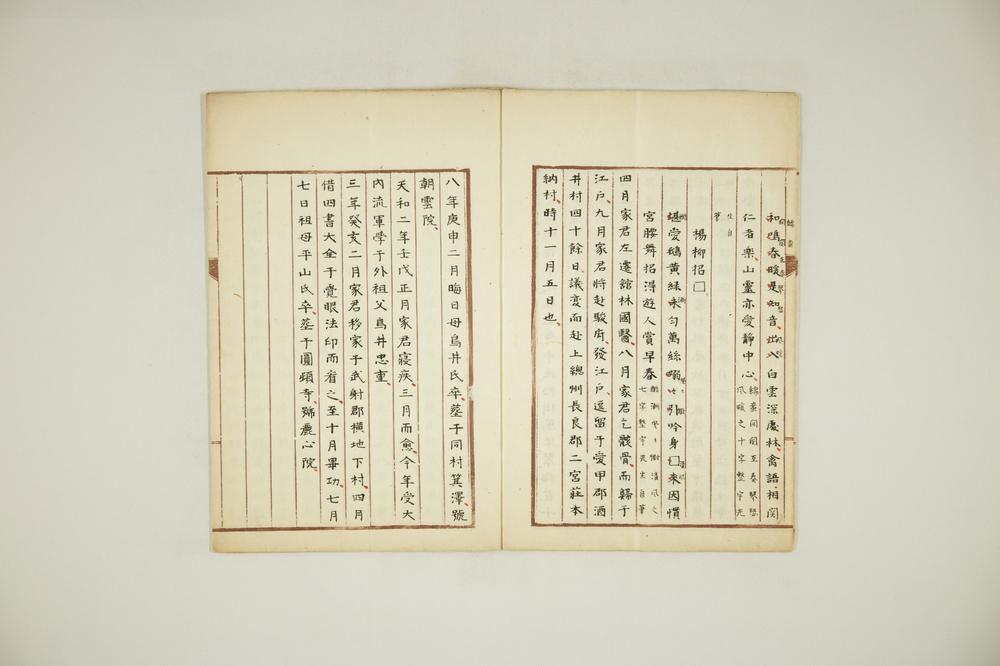 和鳴春暖是知音出入白雲深處林禽語相関
仁者樂山靈亦愛靜中心綿蛮间関互奏琴瑟風暖之十字整宇先
生自筆
楊柳招□
堪愛鵝黄緑未匀萬絲嫋々引吟身□来因慣
宮腰舞招得遊人賞早春
四月家君左遷舘林國醫八月家君乞骸骨而歸于
江戸九月家君將赴駿府發江戸逗留于愛甲郡酒
井村四十餘日議変而赴上總州長良郡二宮莊本
納村時十一月五日也
八年庚申二月晦日母鳥井氏卒葬于同村箕澤號
朝雲院
天和二年壬戌正月家君寝疾三月而愈今年受大
内流軍學于外祖父鳥井忠重
三年癸亥二月家君移家于武射郡横地下村四月
借四書大全于覺眼法印而看之至十月畢功七月
七日祖母平山氏卒葬于圓頓寺號麗心院